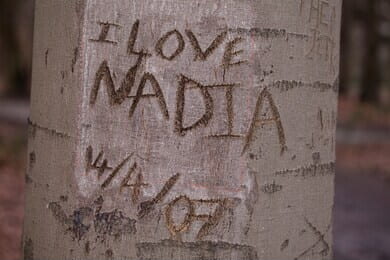 I LOVE
NADIA
4/4/07